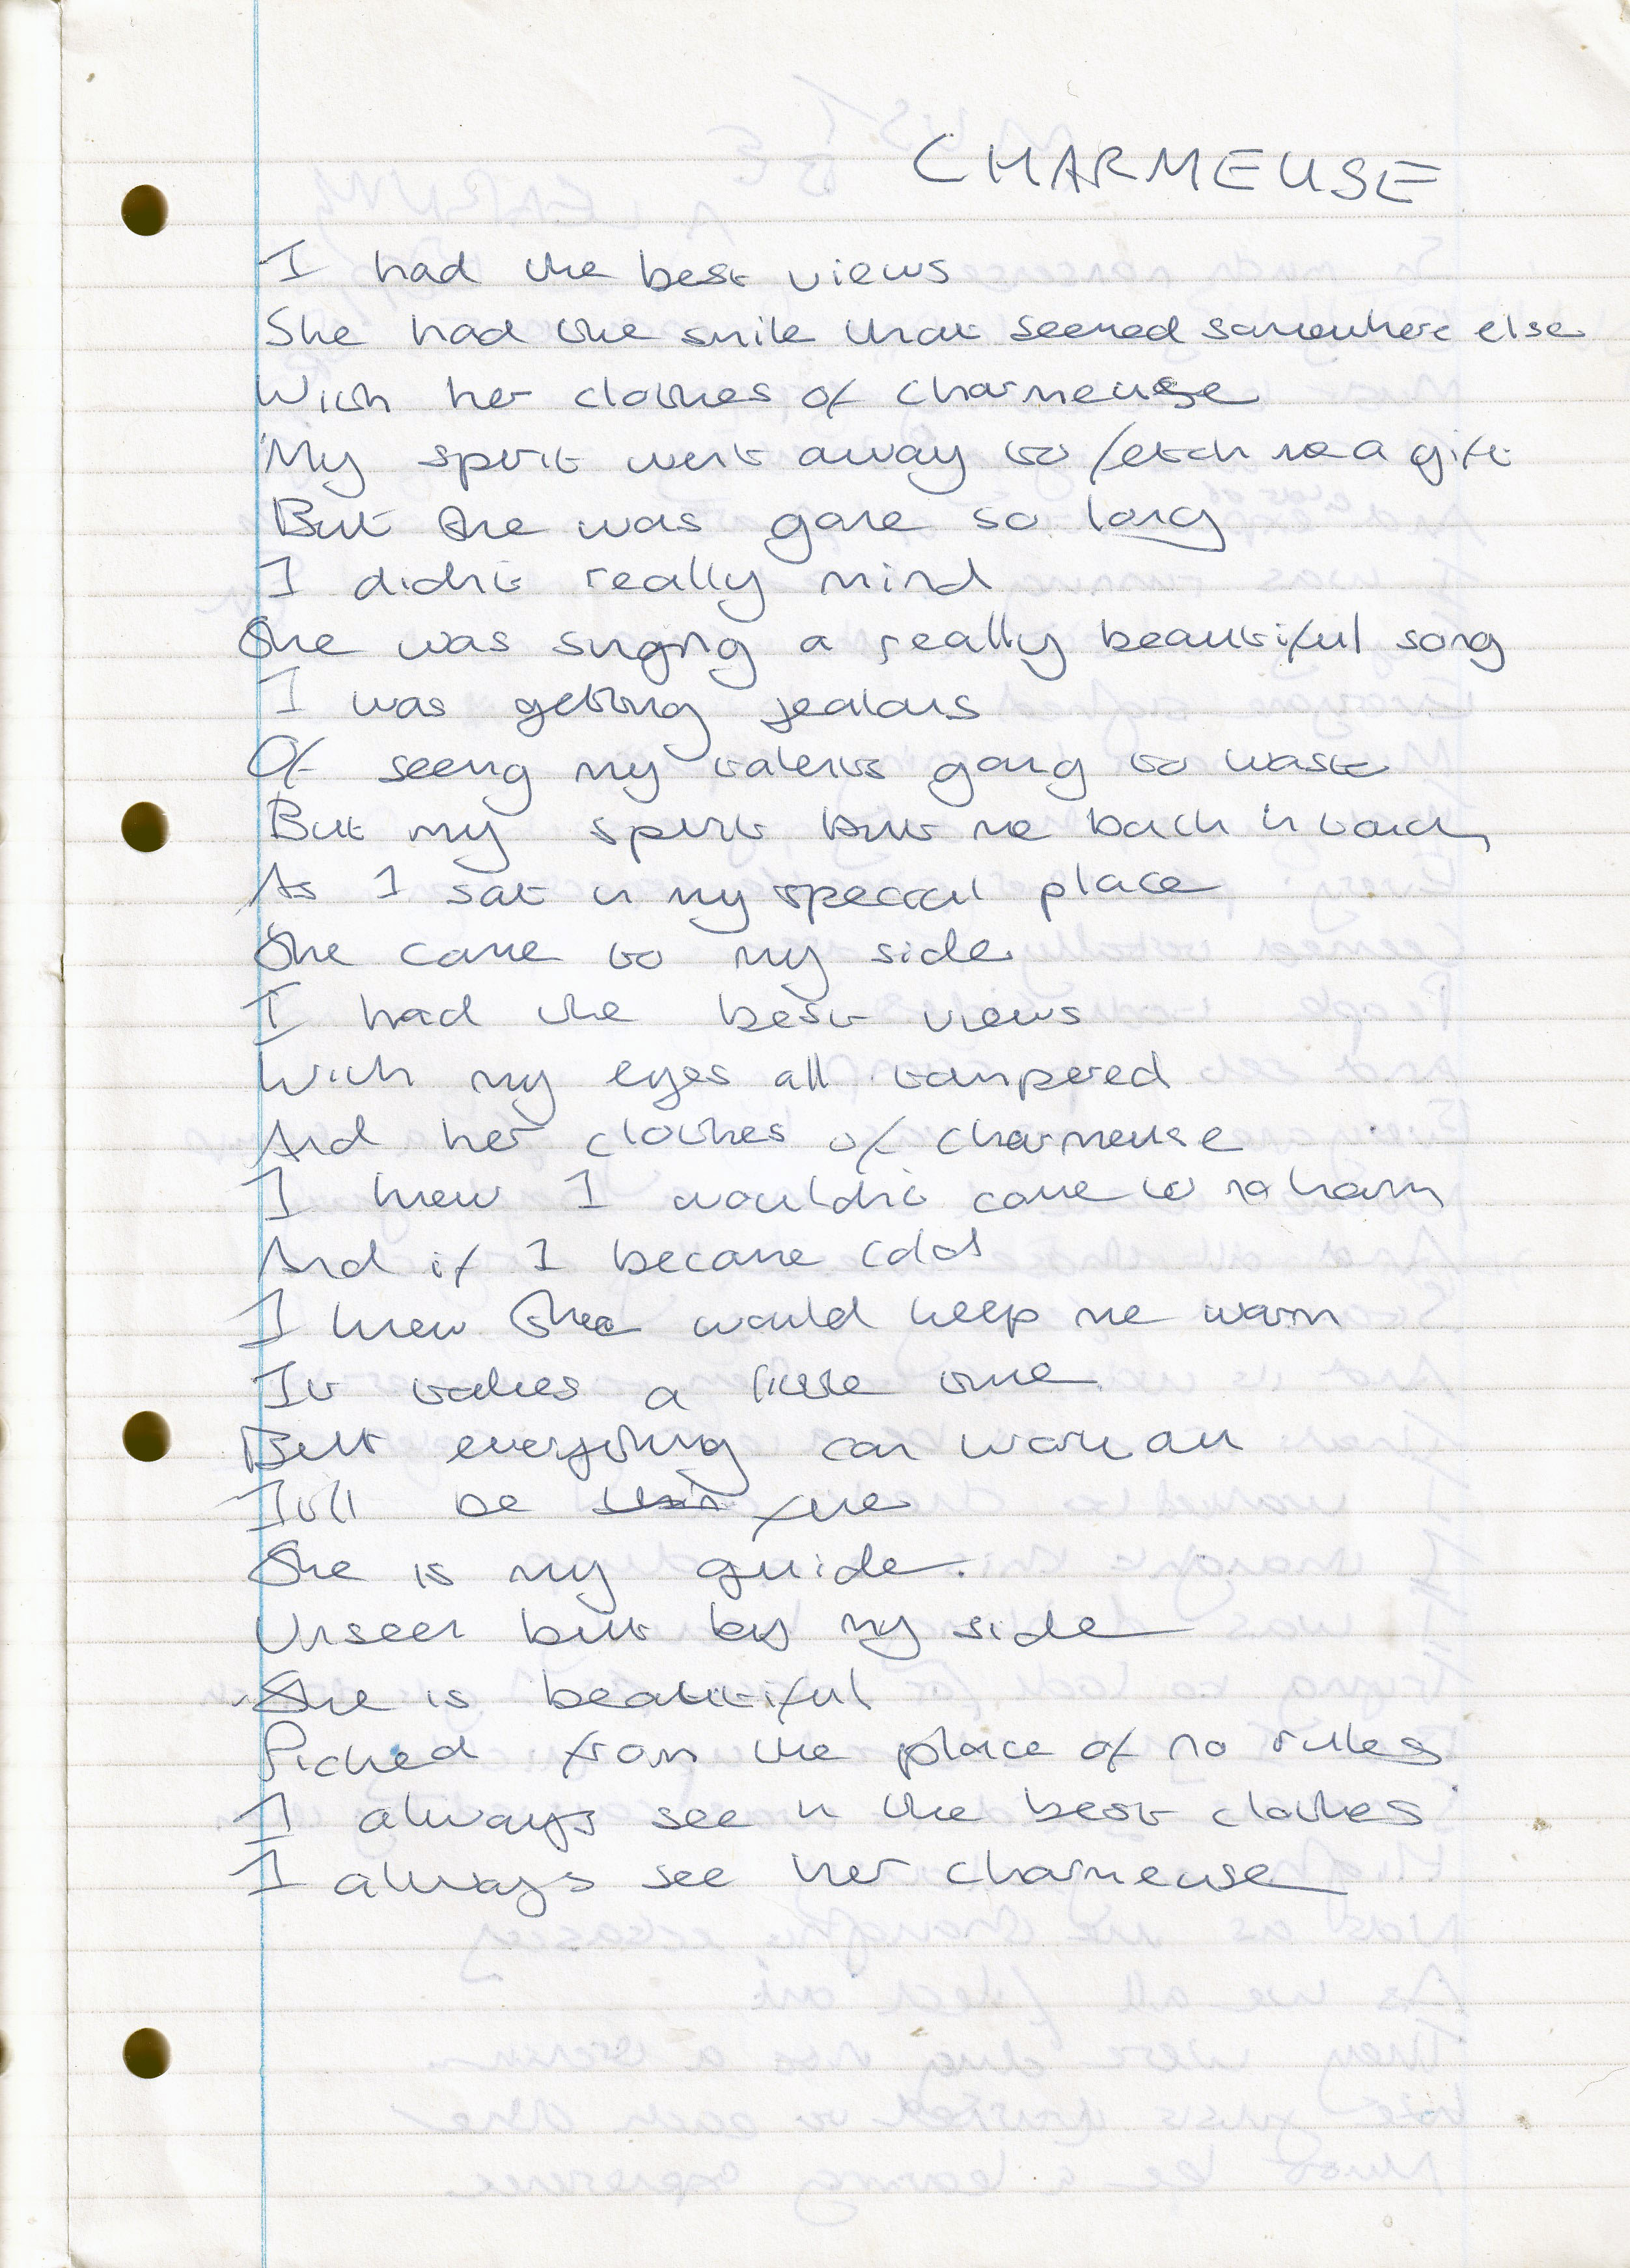 CHARMEUSE
I had the best views
She had the smile that seemed somewhere else
With her clothes of charmeuse
My spirit went away to fetch me a gift
But she was gone so long
I didn't really mind
She was singing a really beautiful song
I was getting jealous
Of seeing my talents going to waste
But my spirit put me back in touch
As I sat in my special place
She came to my side
I had the best views
With my eyes all tampered
And her clothes of charmeuse
I knew I wouldn't come to no harm
And if I became cold
I knew she would keep me warm
It takes a little time
But everything can work out
It'll be fine
She is my guide.
Unseen but by my side
She is beautiful
Picked from the place of no rules
I always see in the best clothes
I always see her charmeuse